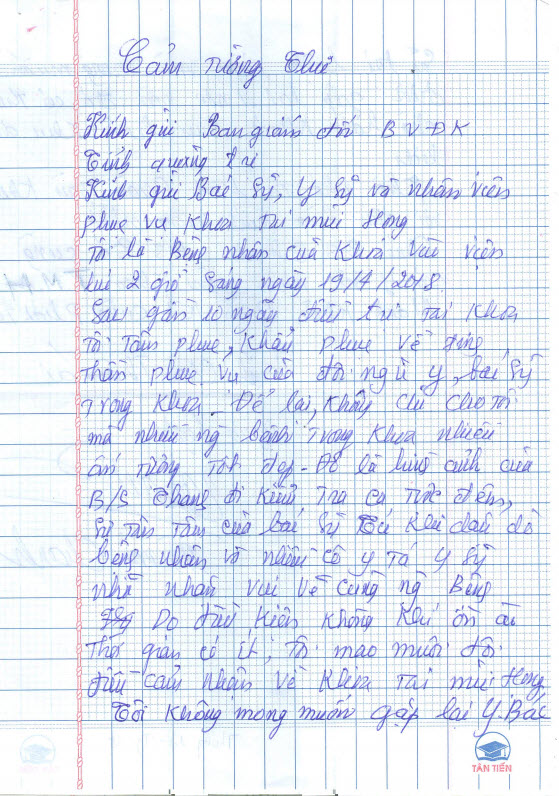 Cảm tưởng Thư
Kính gửi Ban giám đốc BVĐK
Tỉnh quảng trị
Kính gửi Bác sỹ, Y sỹ và nhân viên
phục vụ khoa Tai mũi Họng
Tôi là Bệng nhân của Khoa vào viện
lúc 2 giờ sáng ngày 19/4/2018.
Sau gần 10 ngày điều trị tại khoa
tôi Tâm phục, khẩu phục về
thần phục vụ của đội ngũ y, bác sỹ
Trong khoa. Để lại, không chỉ cho tôi
mà nhiều ng bệnh Trong khoa nhiều
ấn tượng Tốt đẹp - Đó là hình ảnh của
B/S Thang đi kiểm Tra ca Trực đêm,
sự tận tâm của bác sỹ Tú khi
bệng nhân và những cô y tá y sỹ
nhã nhặn vui vẻ cùng ng Bệng
Do điều kiện không khí ồn ào
Thời gian có ít, tôi mạo muội đôi
điều cảm nhận về khoa Tai mũi Họng,
Tôi không mong muốn gặp lại Y. Bác
TÂN TIẾN